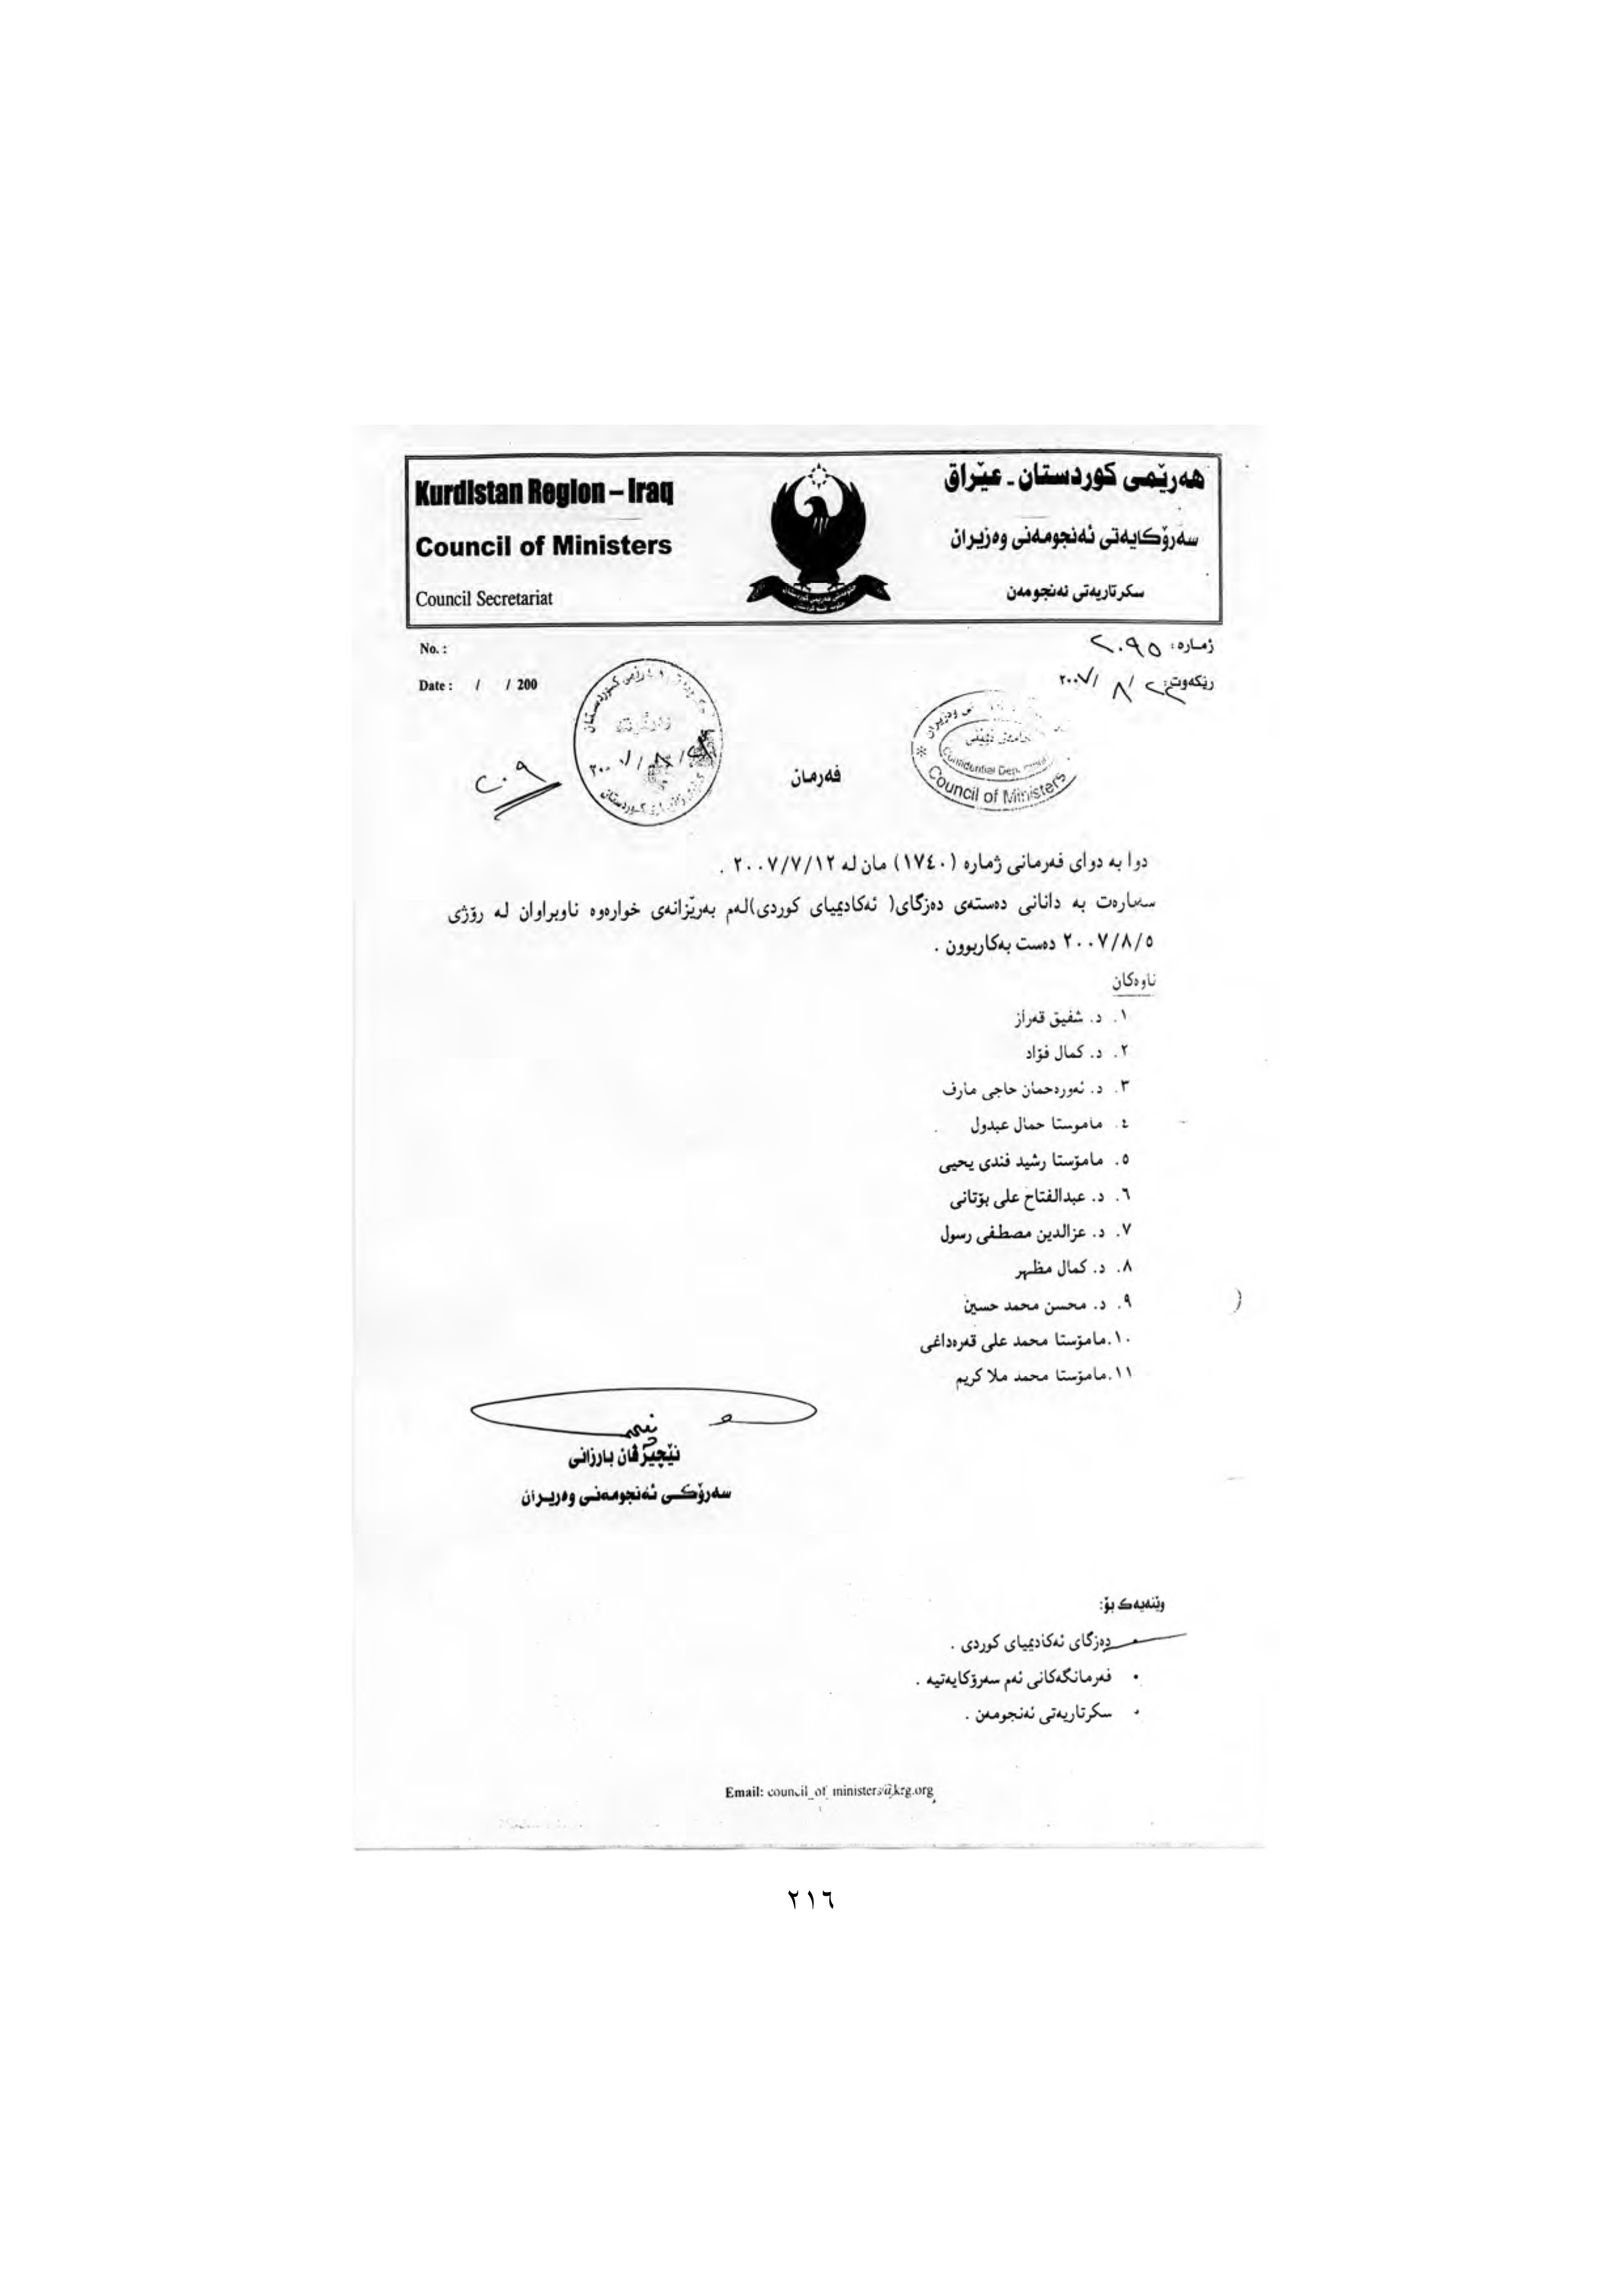 Kurdistan Region – Iraq
هەرێمی کوردستان - عێراق
Council of Ministers
سەرۆکایەتی ئەنجومەنی وەزیران
Council Secretariat
سکرتاریەتی ئەنجومەن
No. :
ژمارە: ٢٠٩٥
Date : / / 200
رێکەوت: / ٨ / ٢٠٠٧
٢٠٩
Council of Ministers
فەرمان
دوا بە دوای فەرمانی ژمارە (١٧٤٠) مان لە ٢٠٠٧/٧/١٢ .
سەبارەت بە دانانی دەستەی دەزگای( ئەکادیمیای کوردی)لەم بەرێزانەی خوارەوە ناوبراوان لە رۆژی
٢٠٠٧/٨/٥ دەست بەکاربوون .
ناوەکان
١. د. شفیق قەزاز
٢. د. کمال فۆاد
٣. د. ئەورەحمان حاجی مارف
٤. مامۆستا جمال عبدول
٥. مامۆستا رشید فندی یحیی
٦. د. عبدالفتاح علی بۆتانی
٧. د. عزالدین مصطفی رسول
٨. د. کمال مظهر
٩. د. محسن محمد حسین
١٠.مامۆستا محمد علی قەرەداغی
١١.مامۆستا محمد ملا کریم
نێچیرڤان بارزانی
سەرۆکی ئەنجومەنی وەزیران
وێنەیەک بۆ:
دەزگای ئەکادیمیای کوردی .
• فەرمانگەکانی ئەم سەرۆکایەتیە .
• سکرتاریەتی ئەنجومەن .
Email: council_of_ministers@krg.org
٢١٦